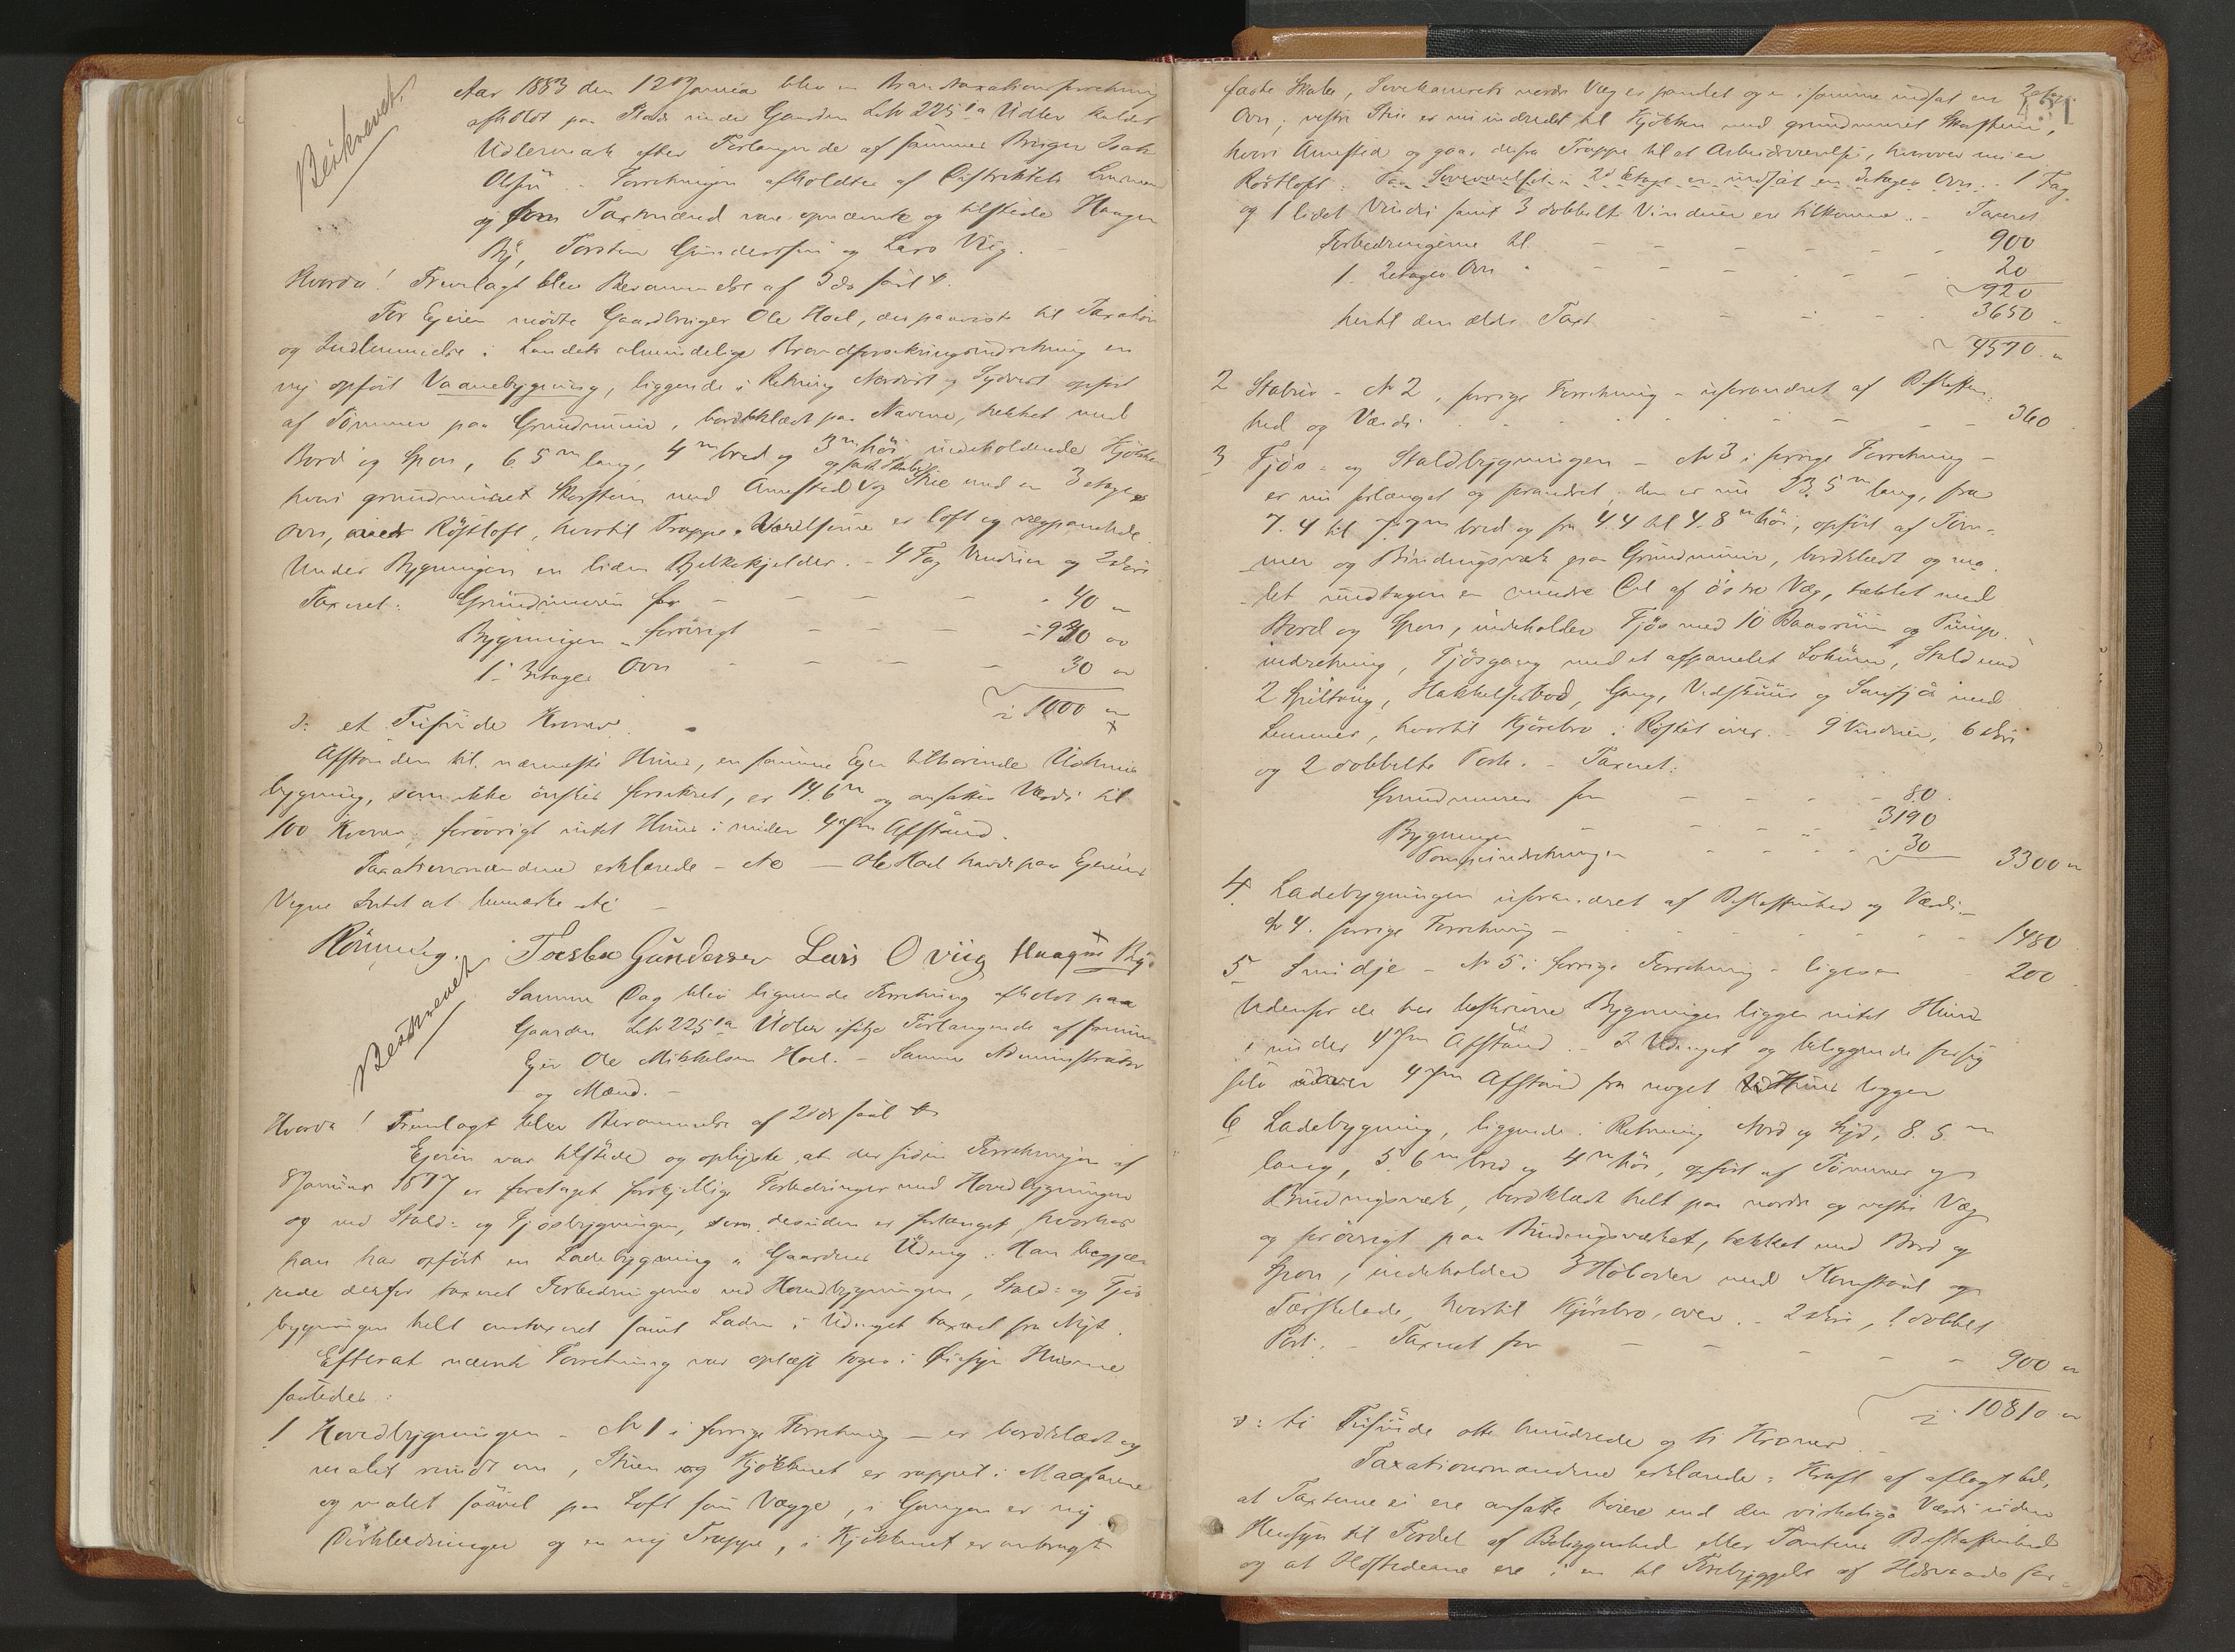 Beskrevet.
Aar 1883 den 12 Januar blev en Brandtaxationsforretning
afholdt paa Plads under Gaarden LNo 225 1a Udler kaldet
Udlermark efter Forlangende af sammes Bruger Isak
Olsen. Forretningen afholdtes af Distriktets Lensmand
og som Taxtmænd vare opnævnte og tilstede Haagen
By, Torsten Gundersen og Lars Viig.
Hvorda! Fremlagt blev Berammelse af 2 ds saal.
For Eieren mødte Gaardbruger Ole Hoel, der paaviste til Taxation
og Indlemmelse i Landets almindelige Brandforsikringsindretning en
ny opført Vaanebygning, liggende i Retning Nordost og Sydvest opført
af Tømmer paa Grundmuur, bordklædt paa Navene, tækket med
Bord og Spon, 6.5 m lang, 4 m bred og 3 m høi indeholdende Kjøkken
hvori grundmuret Skorsteen med Arnested og faste Skabe og Stue med en 3 etages
Ovn, med Røstloft, hvortil Trappe. Værelserne er loft og vægpanelede.
Under Bygningen en liden Bjelkekjelder. - 4 Fag Vinduer og 2 Døre
Taxeret: Grundmuren for - - - 40 "
Bygningen forøvrigt - - - 930 "
1 3etages Ovn - - - 30 "
1000 "
ɔ: et Tusinde Kroner.
Afstanden til nærmeste Huus, en samme Eier tilhørende Udhuus
bygning, som ikke ønskes forsikret, er 14.6 m og ansættes Værdi til
100 Kroner, forøvrigt intet Huus i under Afstand.
Taxationsmændene erklærede - &c - Ole Hoel havde paa Eierens
Vegne Intet at bemærke &c -
Rönning. Torsten Gundersen Lars O Viig Haagen By.
Beskrevet
Samme Dag blev lignende Forretning afholdt paa
Gaarden LNo 225 1a Udler ifølge Forlangende af sammes
Eier Ole Mikkelsen Hoel. - Samme Administrator
og Mænd. -
Hvorda! Fremlagt blev Berammelse af 2 ds saal
Eieren var tilstede og oplyste, at der siden Forretningen af
8 Januar 1877 er foretaget forskjellige Forbedringer med Hovedbygningen
og ved Stald= og Fjøsbygningen, som desuden er forlænget, hvorhos
han har opført en Ladebygning i Gaardens Udeng. Han begjæ
rede derfor taxeret Forbedringerne ved Hovedbygningen, Stald= og Fjøs
bygningen helt omtaxeret samt Laden i Udenget taxeret fra Nyt.
Efterat nævnte Forretning var oplæst toges i Øiesyn Husene
saaledes:
1 Hovedbygningen - No 1 i forrige Forretning - er bordklædt og
malet rundt om, Stuen og Kjøkkenet er rappet i
og malet saavel paa Loft som Vægge, i Gangen er ny
og en ny Trappe, i Kjøkkenet er anbragt
faste Skabe, Sovekamrets nordre Væg er panelet og er i samme indsat en 2etages
Ovn; vestre Stue er nu indredet til Kjøkken med grundmuret Skorsteen,
hvori Arnested og gaar derfra Trappe til et Arbeidsværelse, hvorover nu er
Røstloft. Paa Soveværelset i 2d Etage er indsat en 3etages Ovn. 1 Fag
og 1 lidet Vindu samt 3 dobbelte Vinduer ere tilkomne. - Taxeret
Forbedringerne til - - - 900
1. 2etages Ovn - - - 20
920
hertil den ældre Taxt - - - 3650
4570 "
2 Stabur - No 2, forrige Forretning - uforandret af Beskaffen=
hed og Værdi - - - 360
3 Fjøs= og Staldbygningen - No 3 i forrige Forretning -
er nu forlænget og forandret, den er nu 23.5 m lang, fra
7.4 til 7.7 m bred og fra 4.4 til 4.8 m høi, opført af Tøm=
mer og Bindingsværk paa Grundmuur, bordklædt og ma
let undtagen en mindre Del af østre Væg, tækket med
Bord og Spon, indeholder Fjøs med 10 Baasrum og Pumpe
indretning, Fjøsgang med et afpanelet Lokum, Stald med
2 Spiltoug, Hakkelsesbod, Gang, Vedskuur og Saufjøs med
Lemmer, hvortil Kjørebro i Røstet over. - 9 Vinduer, 6 Døre
og 2 dobbelte Porte. - Taxeret:
Grundmuren for - - - 80
Bygningen - - - 3190
Pompeindretningen - - - 30
3300 "
4 Ladebygningen uforandret af Beskaffenhed og Værdi -
No 4. forrige Forretning - - - 1480
5 Smidje - No 5 i forrige Forretning - ligesaa 200
Udenfor de her beskrevne Bygninger ligger intet Huus
i under Afstand. - I Udenget og beliggende for sig
selv over Afstand fra noget Huus ligger
6 Ladebygning, liggende i Retning Nord og Syd, 8.5 m
lang, 5.6 m bred og 4 m høi, opført af Tømmer og
Bindingsværk, bordklædt helt paa nordre og vestre Væg
og forøvrigt paa Bindingsværket, tækket med Bord og
Spon, indeholder 3 Høboder med Kornstaal og
Tærskelade, hvortil Kjørebro over. - 2 Døre, 1 dobbelt
Port. - Taxeret for - - - 900 "
10810 "
ɔ: ti Tusinde otte hundrede og ti Kroner. -
Taxationsmændene erklærede: Kraft af aflagt Ed,
at Taxterne ei ere ansatte høiere end den virkelige Værdi uden
Hensyn til Fordel af Beliggenhed eller Tomtens Beskaffenhed
og at Ildstederne ere i en til Forebyggelse af Ildsvaade for=